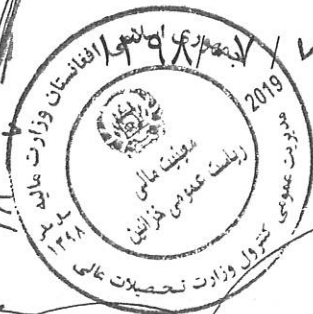 جمهوری اسلامی افغانستان وزارت مالیه
۱۳۹۸
2019
معینیت مالی
ریاست عمومی خزائین
مدیریت عمومی کنترول وزارت تحصیلات عالی